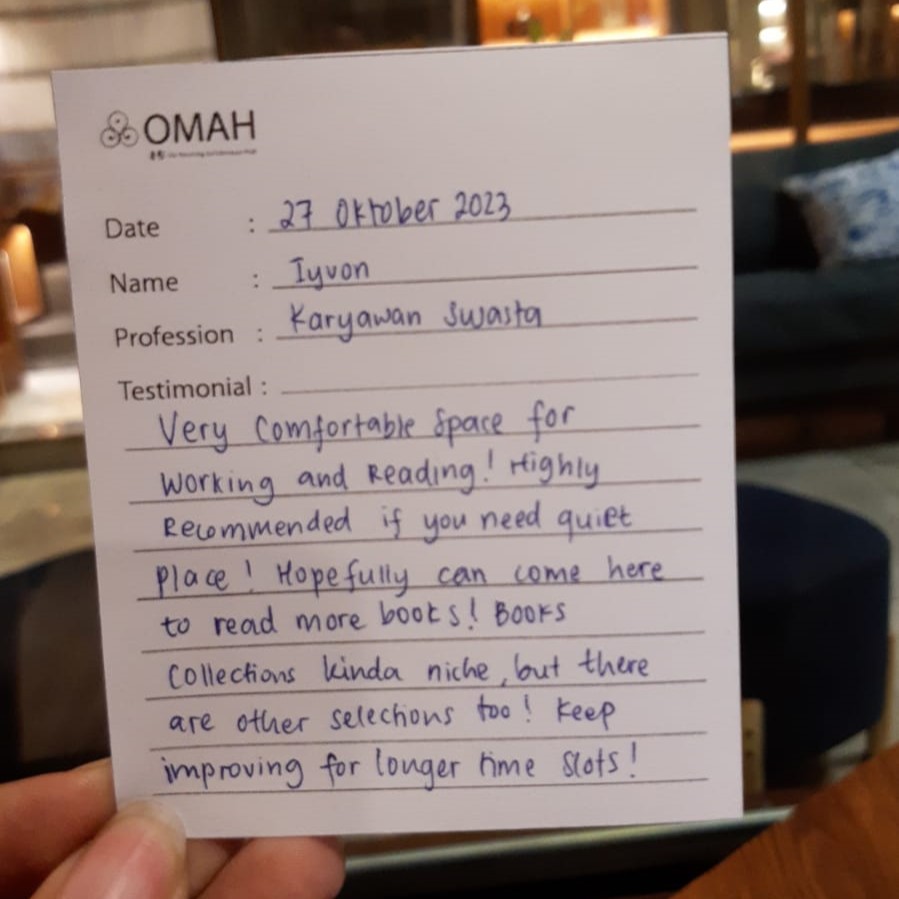 OMAH
Date : 27 Oktober 2023
Name : Iyvon
Profession : Karyawan Swasta
Testimonial :
Very Comfortable Space for
Working and Reading! Highly
Recommended if you need quiet
place! Hopefully can come here
to read more books! Books
Collections kinda niche, but there
are other selections too! Keep
improving for longer time slots!